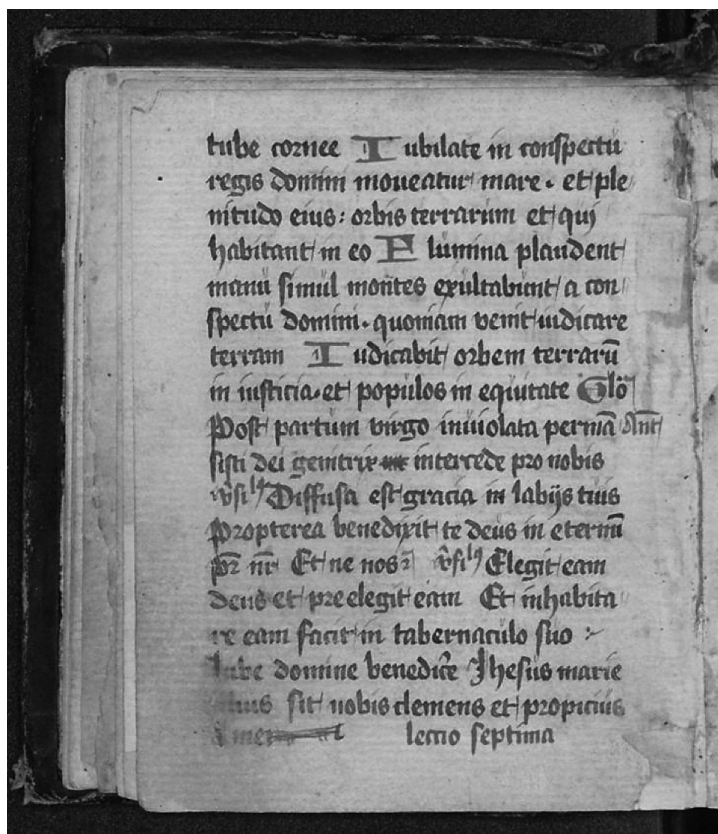 tube cornee Iubilate in conspectu
regis domini moueatur mare. et ple
nitudo eius: orbis terrarum et qui
habitant in eo Flumina plaudent
manu simul montes exultabunt a con
spectu domini. quoniam venit iudicare
terram Iudicabit orbem terrarū
in iusticia. et populos in equitate Glō
Post partum virgo inuiolata permā Ant
sisti dei genitrix intercede pro nobis
Diffusa est gracia in labijs tuis
Propterea benedixit te deus in eternū
pr̄ nr̄ Et ne nos Elegit eam
deus et preelegit eam Et inhabita
re eam facit in tabernaculo suo
Iube domine benedicē Jhesus marie
filius sit nobis clemens et propicius
Amen lectio septima